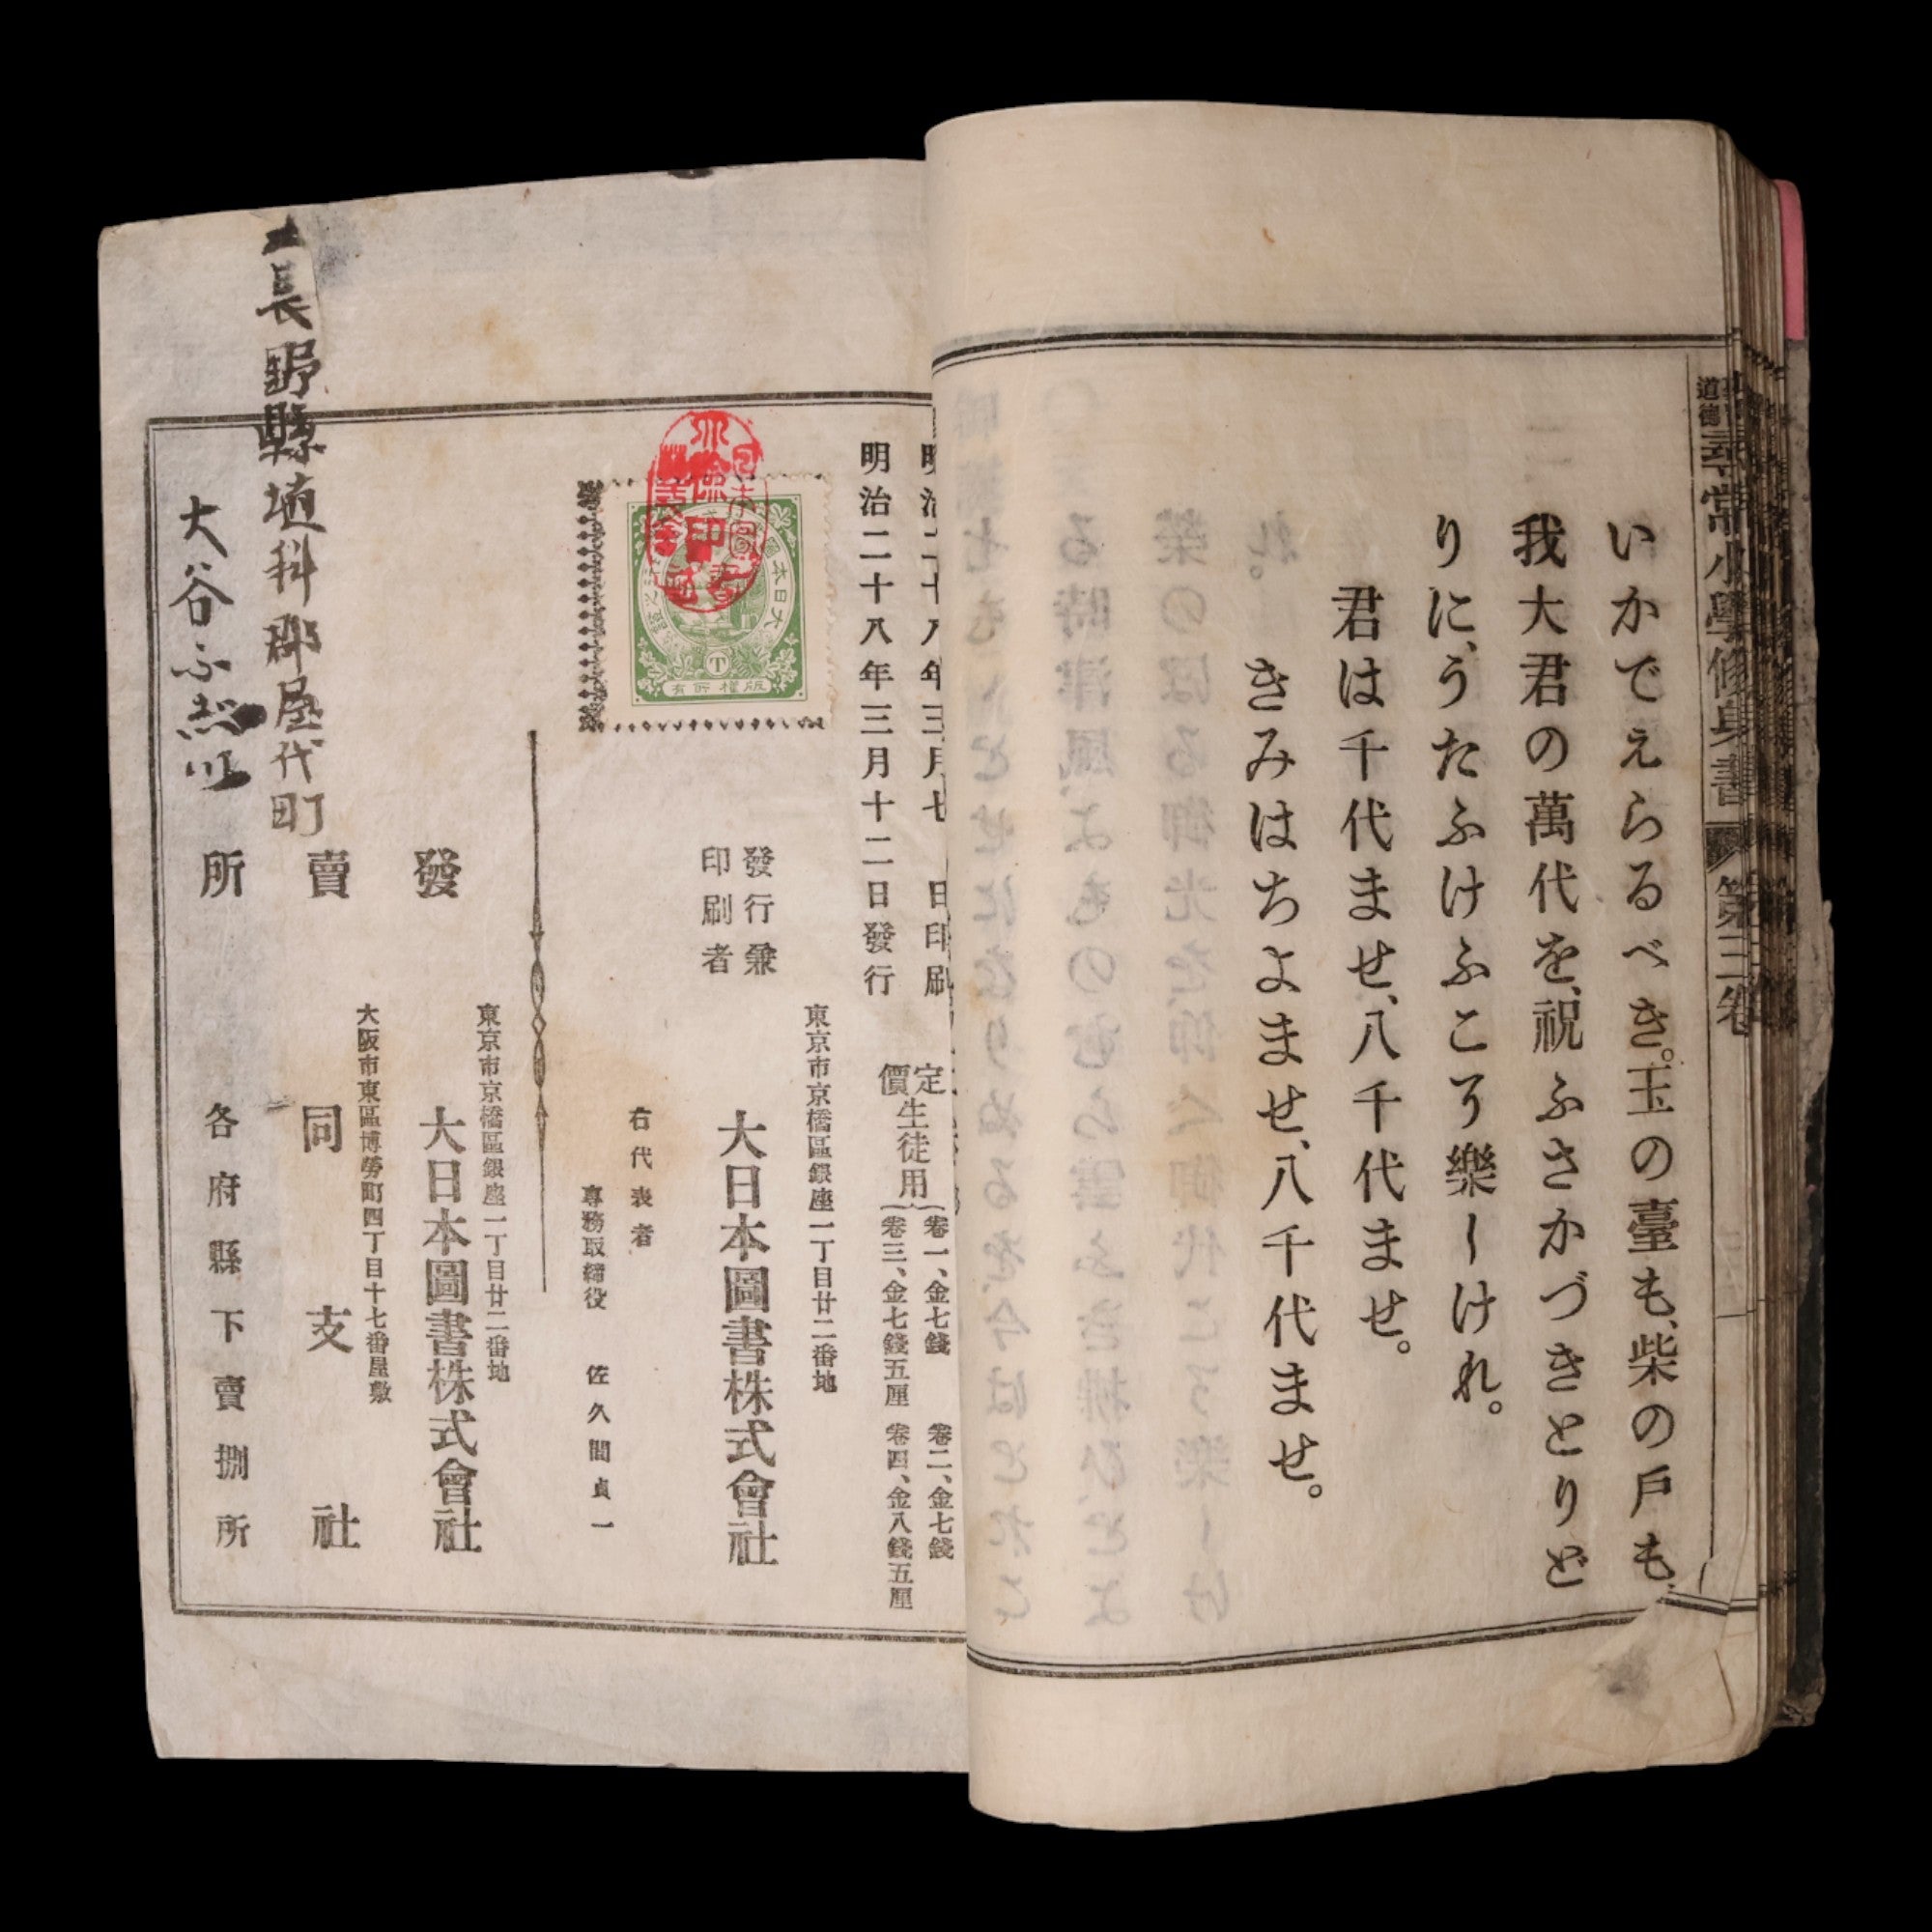 尋常小學修身書 第三卷
いかでえらるべき。玉の臺も、柴の戸も、
我大君の萬代を、祝ふさかづきとりど
りに、うたふけふこそ樂しけれ。
君は千代ませ、八千代ませ。
きみはちよませ、八千代ませ。
明治二十八年三月七日印刷
明治二十八年三月十二日發行
定價
生徒用
卷一、金七錢 卷二、金七錢
卷三、金七錢五厘 卷四、金八錢五厘
版權所有
東京市京橋區銀座一丁目廿二番地
發行兼
印刷者
大日本圖書株式會社
右代表者
專務取締役 佐久間貞一
發賣所
東京市京橋區銀座一丁目廿二番地
大日本圖書株式會社
大阪市東區博勞町四丁目十七番屋敷
同支社
各府縣下賣捌所
長野縣埴科郡屋代町
大谷